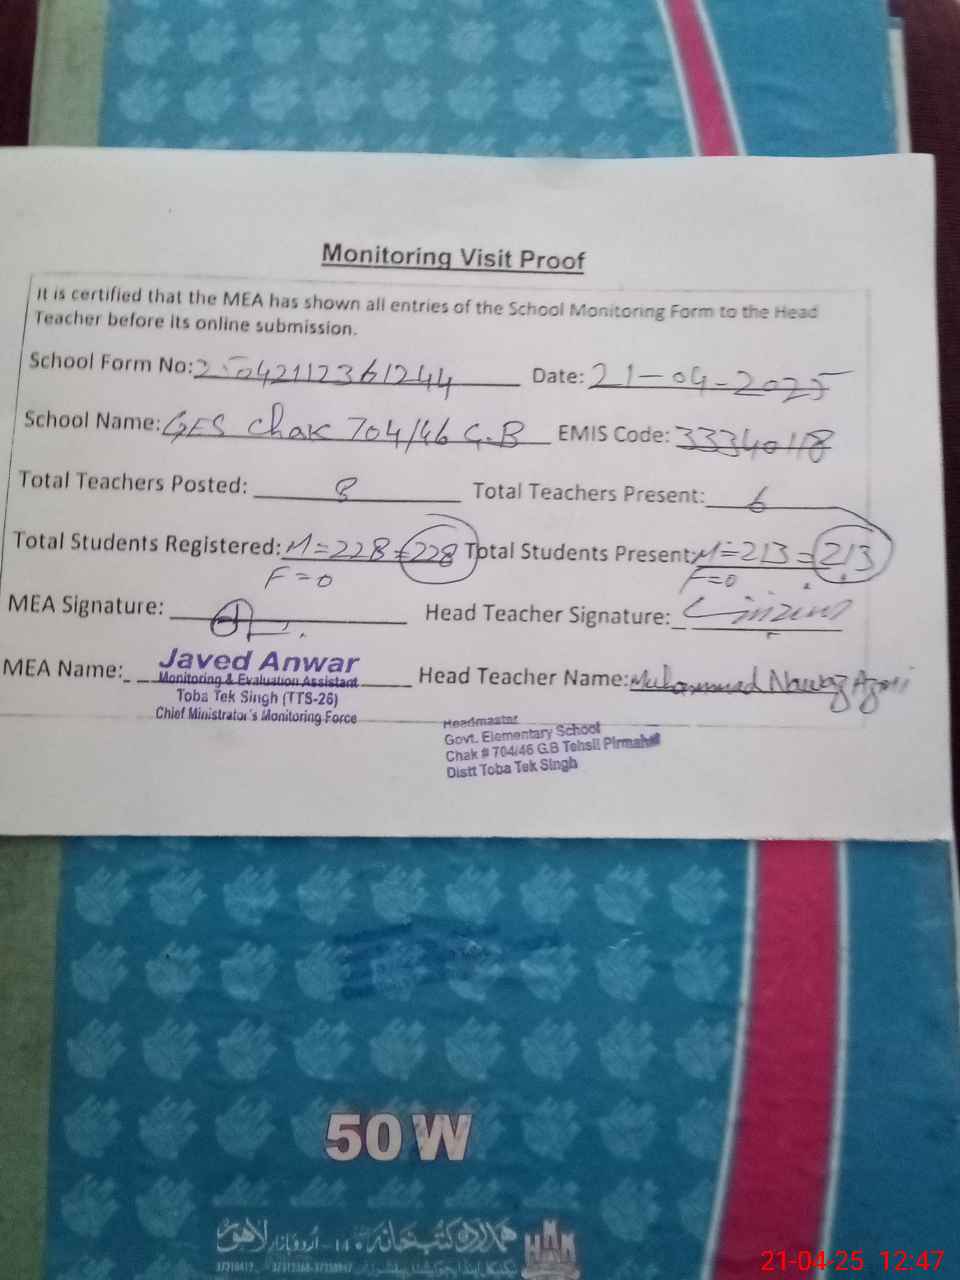 Monitoring Visit Proof
It is certified that the MEA has shown all entries of the School Monitoring Form to the Head
Teacher before its online submission.
School Form No: 25042112361244 Date: 21-04-2025
School Name: GES Chak 704/46 G.B EMIS Code: 33340118
Total Teachers Posted: 8 Total Teachers Present: 6
Total Students Registered: M=228=228 Total Students Present: M=213=213
F=0 F=0
MEA Signature: Head Teacher Signature:
MEA Name: Javed Anwar Head Teacher Name: Muhammad Nawaz
Monitoring & Evaluation Assistant
Toba Tek Singh (TTS-26)
Chief Ministrator's Monitoring Force
Headmaster
Govt. Elementary School
Chak # 704/46 G.B Tehsil Pirmahal
Distt Toba Tek Singh
50 W
کتب خانہ ۱۴- اردو بازار لاہور
21-04-25 12:47